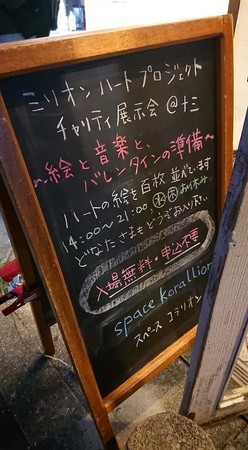 ミリオン ハート プロジェクト
チャリティ 展示会 @ナミ
〜絵と音楽と、
バレンタインの準備〜
ハートの絵を百枚 並べています
14:00〜21:00 水木 お休み
どなたさまもどうぞお入り下さい
入場無料・申込不要
space korallion
スペース コラリオン